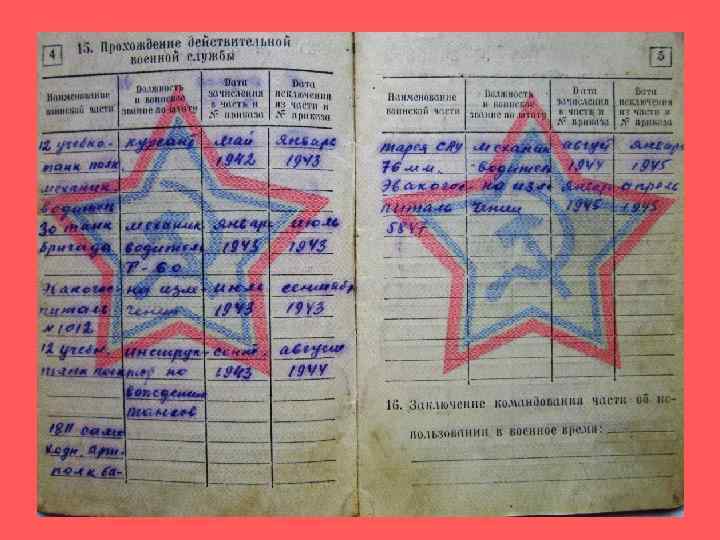 4
15. Прохождение действительной
военной службы
Наименование
воинской части
Должность
и воинское
звание по штату
Дата
зачисления
в часть и
№ приказа
Дата
исключения
из части и
№ приказа
12 учебно- курсант май январь
танк полк 1942 1943
механик
водител
30 танк механик январь июль
бригада водитель 1943 1943
Т-60
Эвакогос- на изле- июль сентябрь
питаль чении 1943 1943
№1012
12 учебн. инструк- сент. август
танк полк тор по 1943 1944
вождению
танков
1811 само
ходн. арт.
полк ба-
5
Наименование
воинской части
Должность
и воинское
звание по штату
Дата
зачисления
в часть и
№ приказа
Дата
исключения
из части и
№ приказа
тарея САУ механик август январь
76 мм. водител 1944 1945
Эвакогос- на изле январ апрель
питаль чении 1945 1945
5847
16. Заключение командования части об ис-
пользовании в военное время: